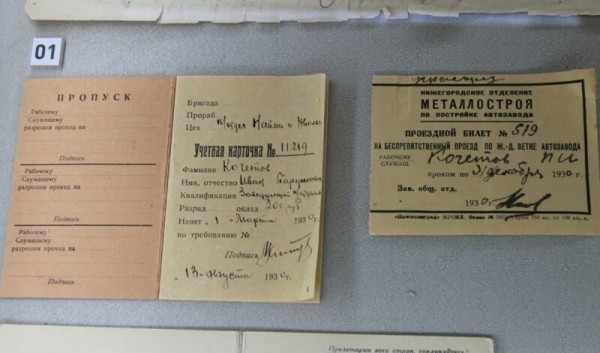 01
ПРОПУСК
Рабочему
Служащему
разрешен проход на
Подпись
Рабочему
Служащему
разрешен проход на
Подпись
Рабочему
Служащему
разрешен проход на
Подпись
Бригада
Прораб
Цех
Учетная карточка № 11219
Фамилия Кочетов
Имя, отчество Иван
Квалификация Заведующий
Разряд оклад
Нанят 1 Марта 1930 г.
по требованию №
Подпись
13 Августа 1930 г.
НИЖЕГОРОДСКОЕ ОТДЕЛЕНИЕ
МЕТАЛЛОСТРОЯ
ПО ПОСТРОЙКЕ АВТОЗАВОДА
ПРОЕЗДНОЙ БИЛЕТ № 519
НА БЕСПРЕПЯТСТВЕННЫЙ ПРОЕЗД ПО Ж.-Д. ВЕТКЕ АВТОЗАВОДА
РАБОЧЕМУ
СЛУЖАЩ. Кочетов
сроком по 31 декабря 1930 г.
Зав. общ. отд.
1930 г.
Пролетарии всех стран, соединяйтесь!